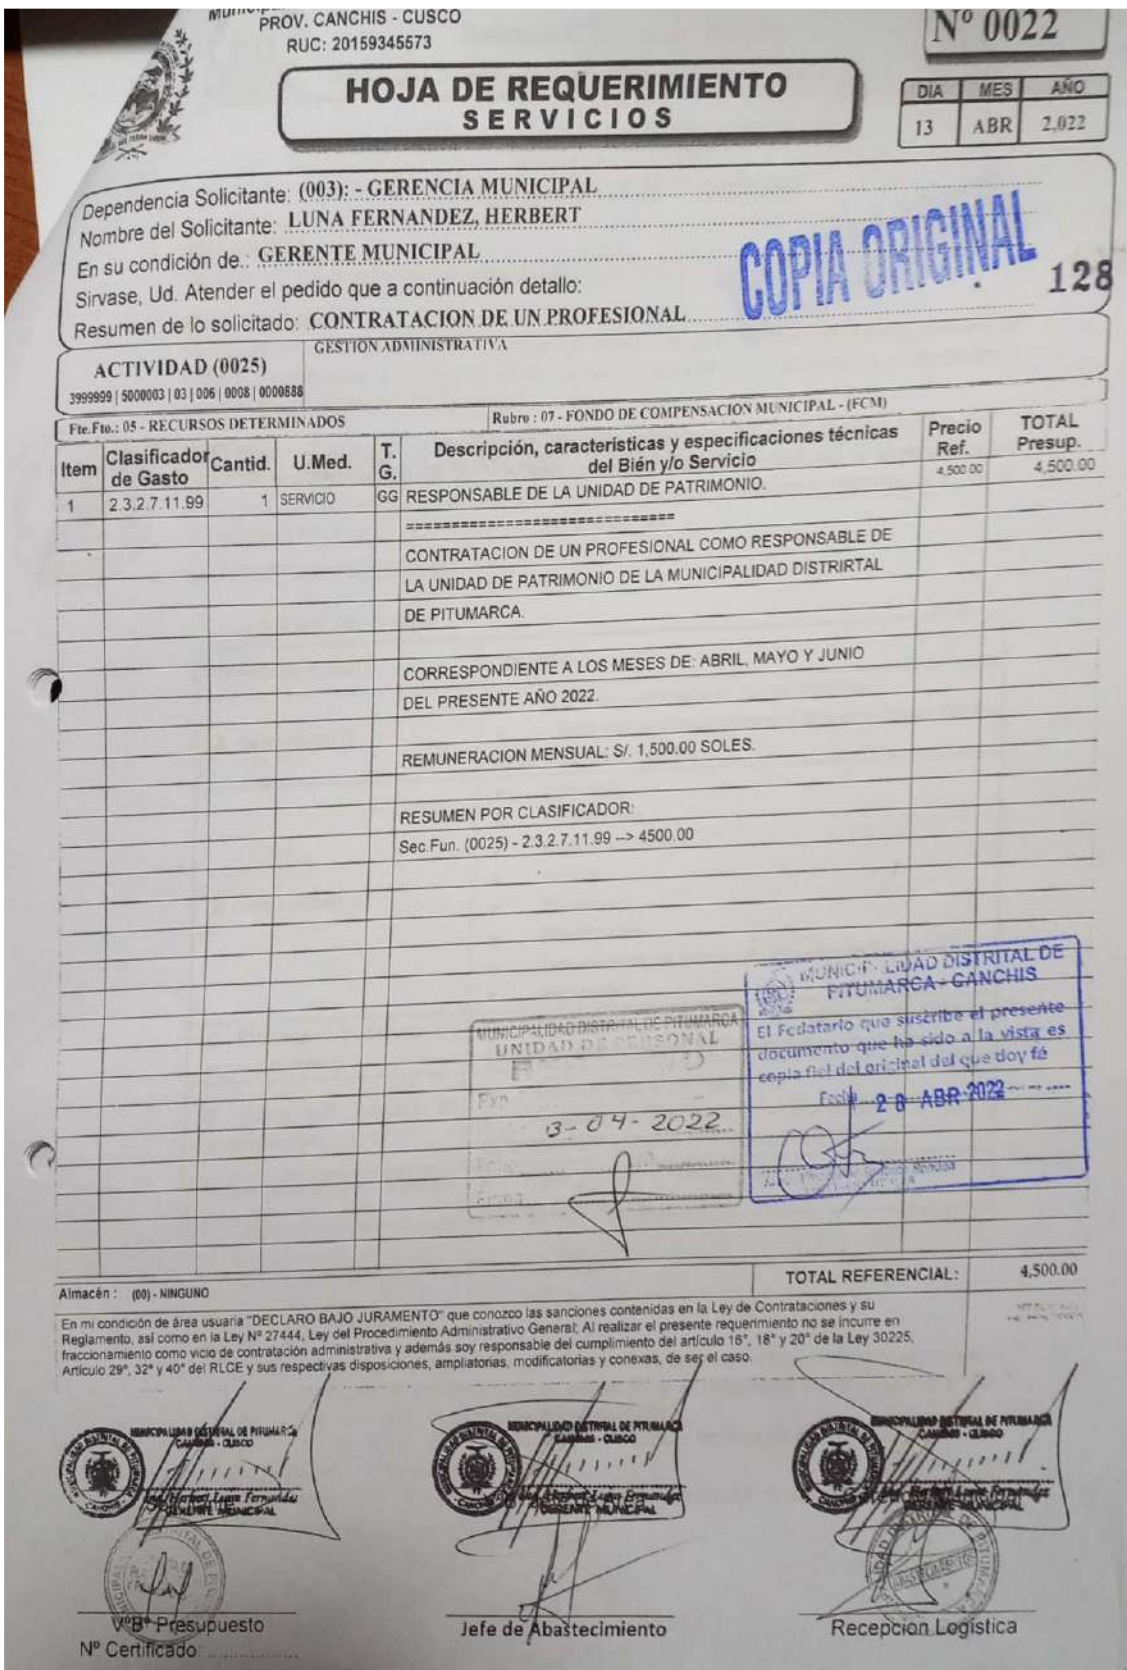 PROV. CANCHIS - CUSCO
RUC: 20159345573
Nº 0022
HOJA DE REQUERIMIENTO
SERVICIOS
DIA MES AÑO
13 ABR 2,022
Dependencia Solicitante: (003): - GERENCIA MUNICIPAL
Nombre del Solicitante: LUNA FERNANDEZ, HERBERT
En su condición de.: GERENTE MUNICIPAL
Sirvase, Ud. Atender el pedido que a continuación detallo:
Resumen de lo solicitado: CONTRATACION DE UN PROFESIONAL
COPIA ORIGINAL
128
ACTIVIDAD (0025)
GESTION ADMINISTRATIVA
3999999 | 5000003 | 03 | 006 | 0008 | 0000888
Fte.Fto.: 05 - RECURSOS DETERMINADOS
Rubro : 07 - FONDO DE COMPENSACION MUNICIPAL - (FCM)
Item Clasificador de Gasto Cantid. U.Med. T. G. Descripción, características y especificaciones técnicas del Bién y/o Servicio Precio Ref. TOTAL Presup.
1 2.3.2.7.11.99 1 SERVICIO GG RESPONSABLE DE LA UNIDAD DE PATRIMONIO. 4,500.00 4,500.00
==============================
CONTRATACION DE UN PROFESIONAL COMO RESPONSABLE DE
LA UNIDAD DE PATRIMONIO DE LA MUNICIPALIDAD DISTRIRTAL
DE PITUMARCA.
CORRESPONDIENTE A LOS MESES DE: ABRIL, MAYO Y JUNIO
DEL PRESENTE AÑO 2022.
REMUNERACION MENSUAL: S/. 1,500.00 SOLES.
RESUMEN POR CLASIFICADOR:
Sec.Fun. (0025) - 2.3.2.7.11.99 --> 4500.00
MUNICIPALIDAD DISTRITAL DE PITUMARCA
UNIDAD DE PERSONAL
Exp.
3-04-2022
MUNICIPALIDAD DISTRITAL DE
PITUMARCA - CANCHIS
El Fedatario que suscribe el presente
documento que ha sido a la vista es
copia fiel del original del que doy fé
Fecha 28 ABR 2022
TOTAL REFERENCIAL: 4,500.00
Almacén : (00) - NINGUNO
En mi condición de área usuaria "DECLARO BAJO JURAMENTO" que conozco las sanciones contenidas en la Ley de Contrataciones y su
Reglamento, así como en la Ley Nº 27444, Ley del Procedimiento Administrativo General; Al realizar el presente requerimiento no se incurre en
fraccionamiento como vicio de contratación administrativa y además soy responsable del cumplimiento del artículo 16°, 18° y 20° de la Ley 30225,
Artículo 29°, 32° y 40° del RLCE y sus respectivas disposiciones, ampliatorias, modificatorias y conexas, de ser el caso.
MUNICIPALIDAD DISTRITAL DE PITUMARCA
CANCHIS - CUSCO
Ing. Herbert Luna Fernandez
GERENTE MUNICIPAL
MUNICIPALIDAD DISTRITAL DE PITUMARCA
CANCHIS - CUSCO
Ing. Herbert Luna Fernandez
GERENTE MUNICIPAL
MUNICIPALIDAD DISTRITAL DE PITUMARCA
CANCHIS - CUSCO
Ing. Herbert Luna Fernandez
GERENTE MUNICIPAL
VºBº Presupuesto
Nº Certificado:
Jefe de Abastecimiento
Recepción Logística